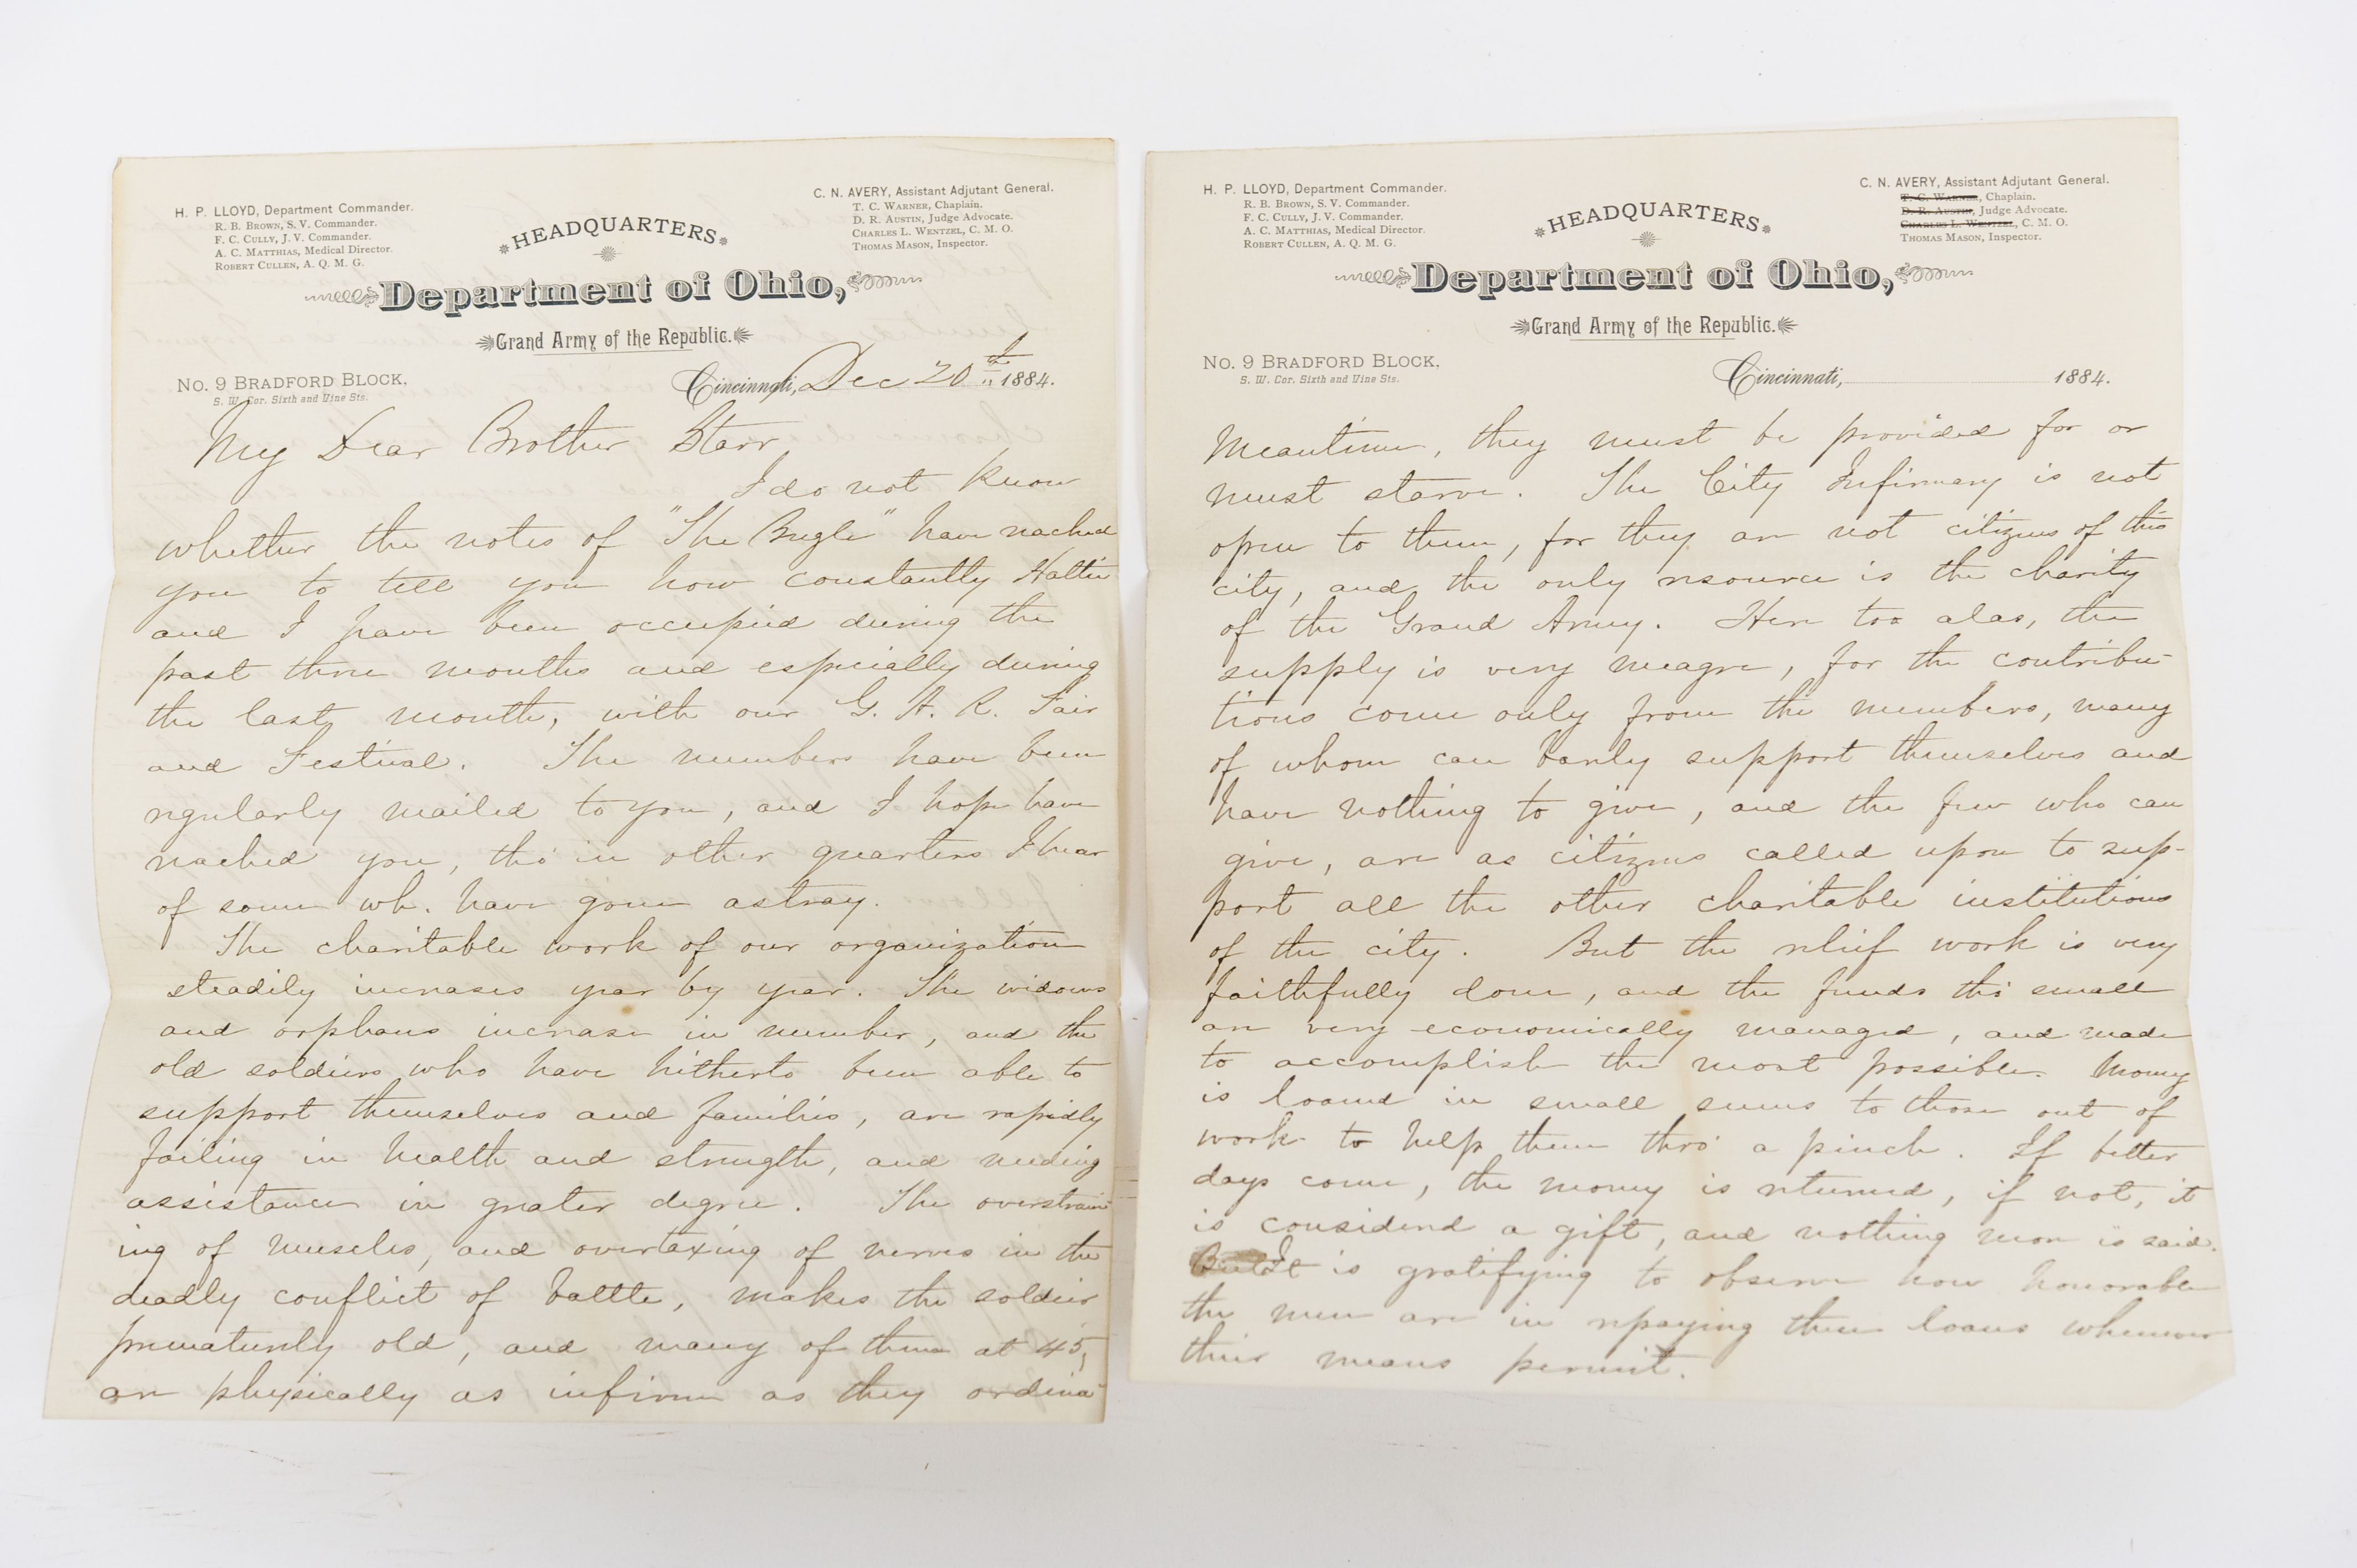 H. P. LLOYD, Department Commander.
R. B. BROWN, S. V. Commander.
F. C. CULLY, J. V. Commander.
A. C. MATTHIAS, Medical Director.
ROBERT CULLEN, A. Q. M. G.
C. N. AVERY, Assistant Adjutant General.
T. C. WARNER, Chaplain.
D. R. AUSTIN, Judge Advocate.
CHARLES L. WENTZEL, C. M. O.
THOMAS MASON, Inspector.
HEADQUARTERS
Department of Ohio,
Grand Army of the Republic.
No. 9 BRADFORD BLOCK,
S. W. Cor. Sixth and Vine Sts.
Cincinnati, Dec 20th 1884.
My Dear Brother Starr
I do not know
whether the notes of "The Bugle" have reached
you to tell you how constantly Hattie
and I have been occupied during the
past three months and especially during
the last month, with our G. A. R. Fair
and Festival. The numbers have been
regularly mailed to you, and I hope have
reached you, tho' in other quarters I hear
of some wh. have gone astray.
The charitable work of our organization
steadily increases year by year. The widows
and orphans increase in number, and the
old soldiers who have hitherto been able to
support themselves and families, are rapidly
failing in health and strength, and needing
assistance in greater degree. The overstrain-
ing of muscles, and overtaxing of nerves in the
deadly conflict of battle, makes the soldier
prematurely old, and many of them at 45,
are physically as infirm as they ordina-
H. P. LLOYD, Department Commander.
R. B. BROWN, S. V. Commander.
F. C. CULLY, J. V. Commander.
A. C. MATTHIAS, Medical Director.
ROBERT CULLEN, A. Q. M. G.
C. N. AVERY, Assistant Adjutant General.
T. C. WARNER, Chaplain.
D. R. AUSTIN, Judge Advocate.
CHARLES L. WENTZEL, C. M. O.
THOMAS MASON, Inspector.
HEADQUARTERS
Department of Ohio,
Grand Army of the Republic.
No. 9 BRADFORD BLOCK,
S. W. Cor. Sixth and Vine Sts.
Cincinnati, 1884.
Meantime, they must be provided for or
must starve. The City Infirmary is not
open to them, for they are not citizens of this
city, and the only resource is the charity
of the Grand Army. Here too alas, the
supply is very meagre, for the contribu-
tions come only from the members, many
of whom can barely support themselves and
have nothing to give, and the few who can
give, are as citizens called upon to sup-
port all the other charitable institutions
of the city. But the relief work is very
faithfully done, and the funds tho' small
are very economically managed, and made
to accomplish the most possible. Money
is loaned in small sums to those out of
work to help them thro' a pinch. If better
days come, the money is returned, if not, it
is considered a gift, and nothing more is said.
But It is gratifying to observe how honorable
the men are in repaying these loans whenever
their means permit.